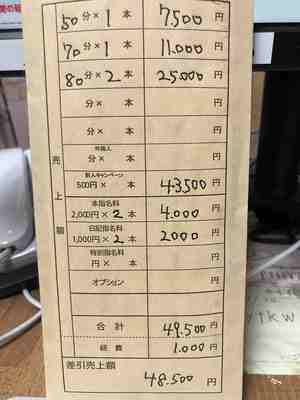 50分×1本 7500円
70分×1本 11.000円
80分×2本 25.000円
分× 本 円
分× 本 円
外国人
分× 本 円
新人キャンペーン
500円× 本 43500円
本指名料
2,000円×2本 4.000円
日記指名料
1,000円×2本 2000円
特別指名料
円× 本 円
オプション 円
売上額
合計 49.500円
経費 1.000円
差引売上額
48.500円